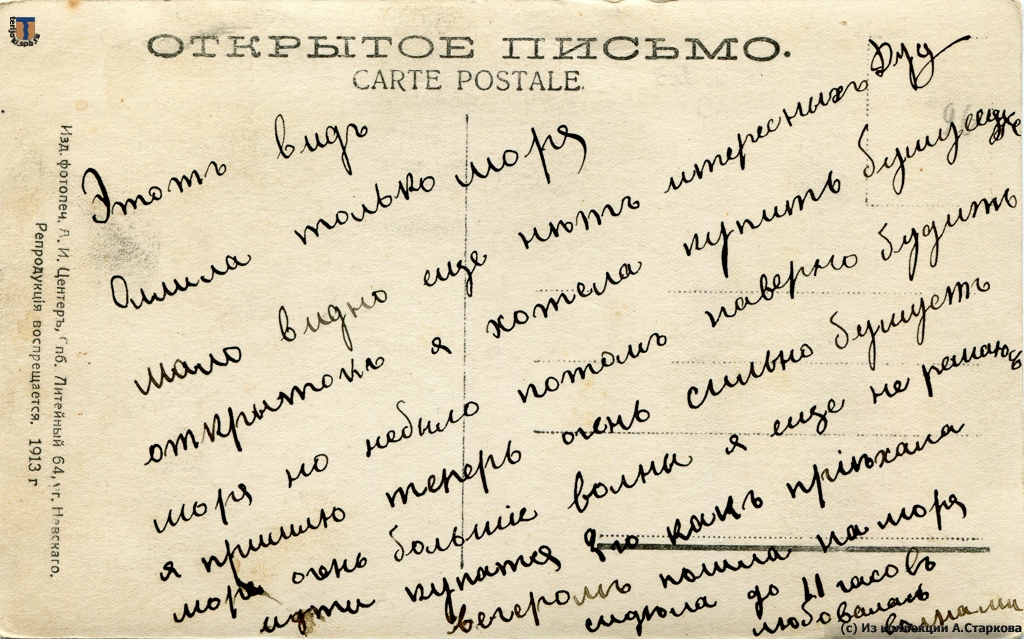 terijoki.spb.ru
ОТКРЫТОЕ ПИСЬМО.
CARTE POSTALE.
Этотъ видъ
только моря
мало видно еще нѣтъ итересныхъ
открытокъ я хотела купить
моря но небыло потомъ наверно будить
я пришлю теперь очень сильно бушуеть
море очень большіе волны я еще не решаюсь
идти купатся какъ пріѣхала
вечеромъ пошла на моря
сидѣла до 11 часовъ
любовалась
волнами
Изд. фотопеч. А. И. Центеръ, Спб. Литейный 64, уг. Невскаго.
Репродукція воспрещается. 1913 г
(c) Из коллекции А.Старкова